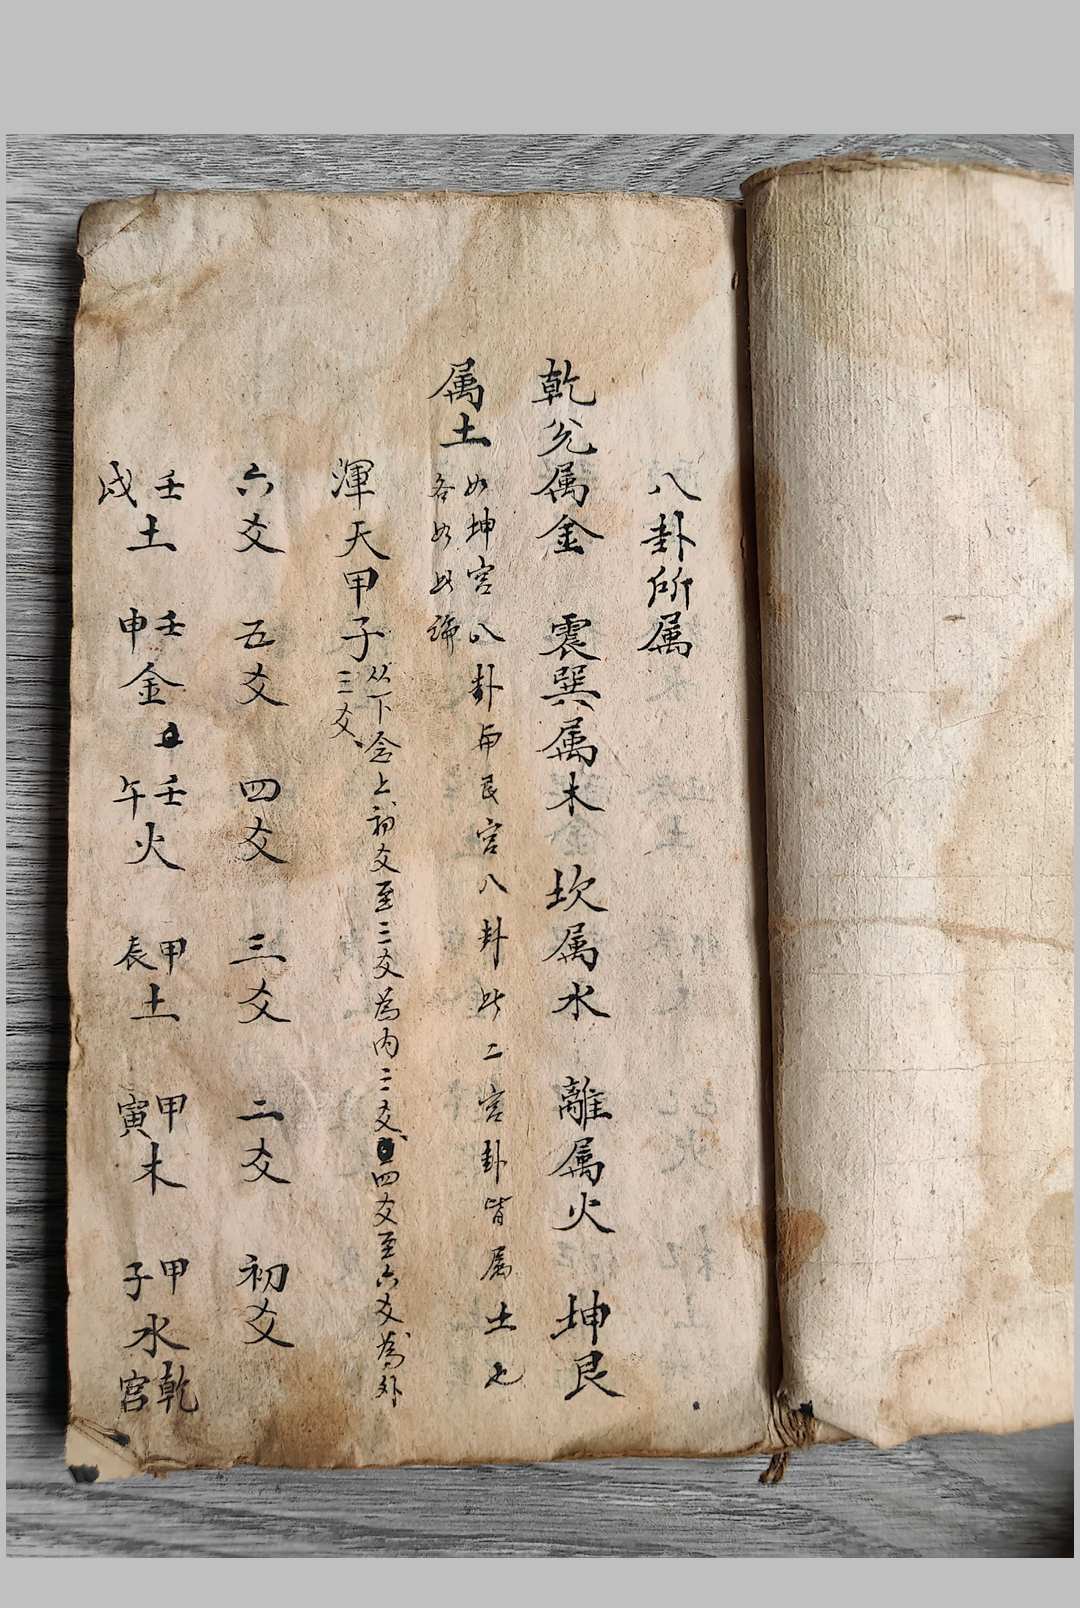 八卦所属
乾兊属金　震巽属木　坎属水　離属火　坤艮
属土
如坤宫八卦与艮宫八卦此二宫卦皆属土也
各如此論
渾天甲子
从下念上初爻至三爻為内三爻、四爻至六爻為外
三爻、
六爻　五爻　四爻　三爻　二爻　初爻
壬戌土　壬申金　壬午火　甲辰土　甲寅木　甲子水　乾宫